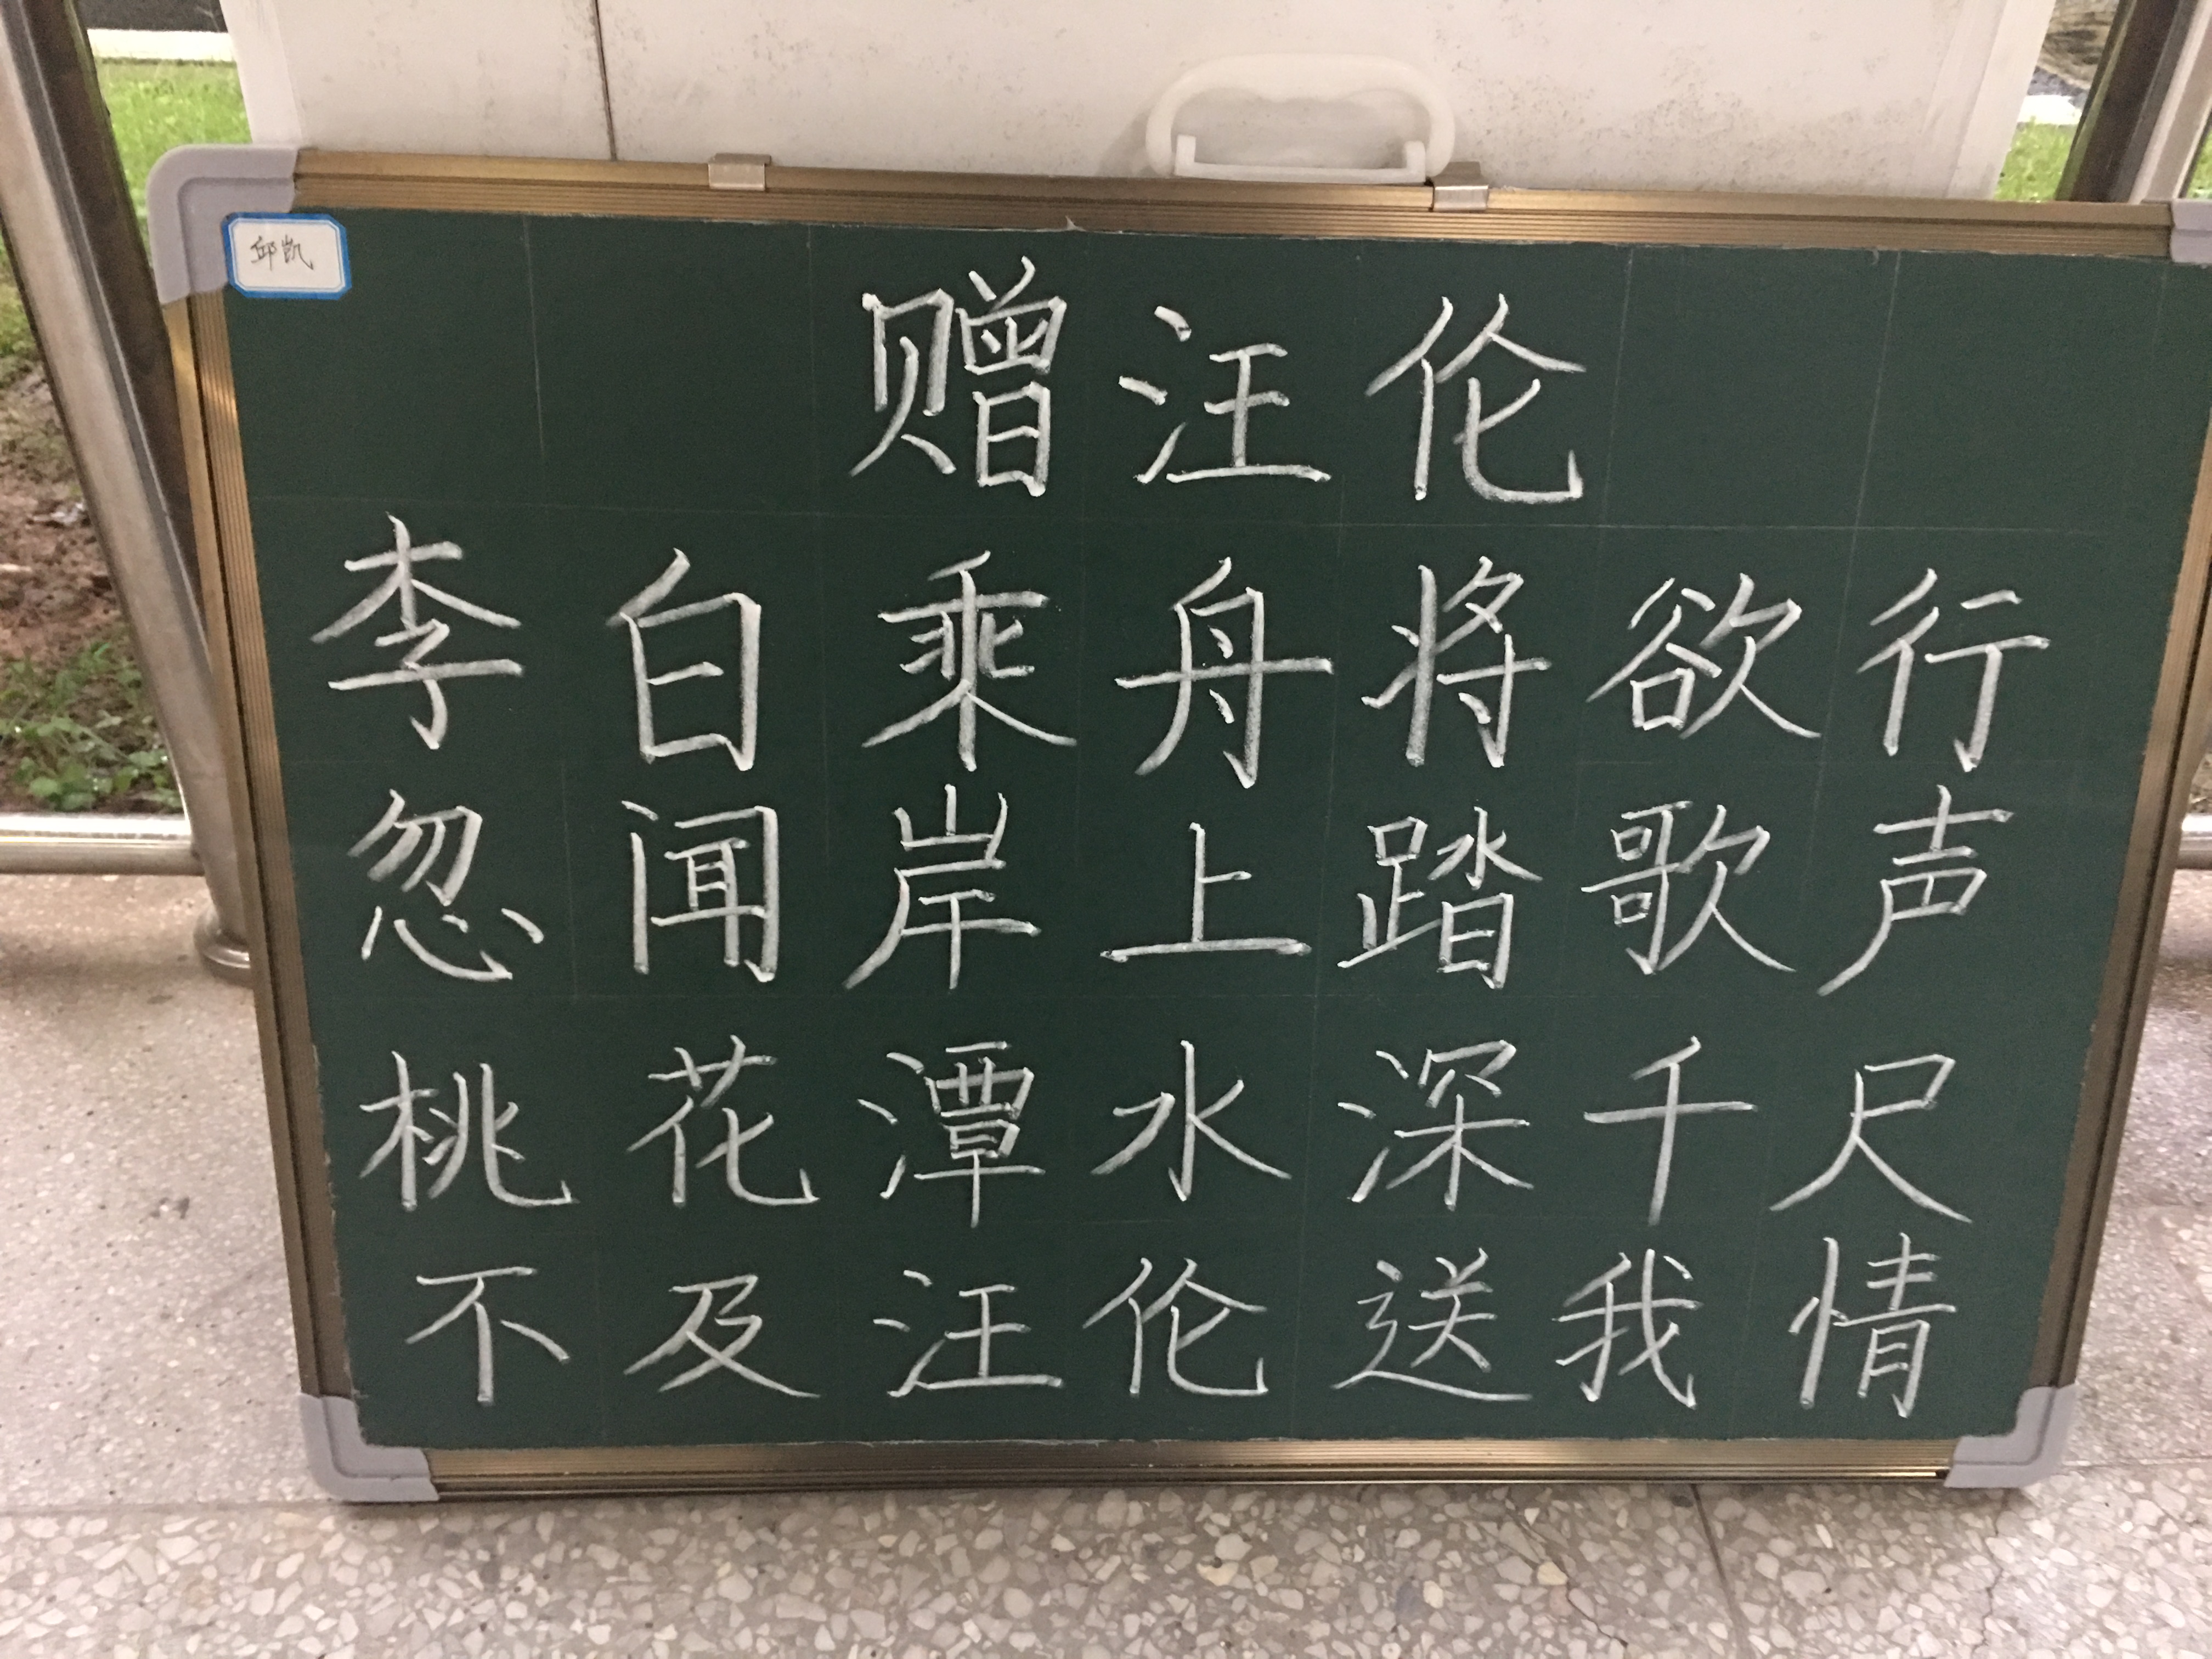 邱凯
赠汪伦
李白乘舟将欲行
忽闻岸上踏歌声
桃花潭水深千尺
不及汪伦送我情